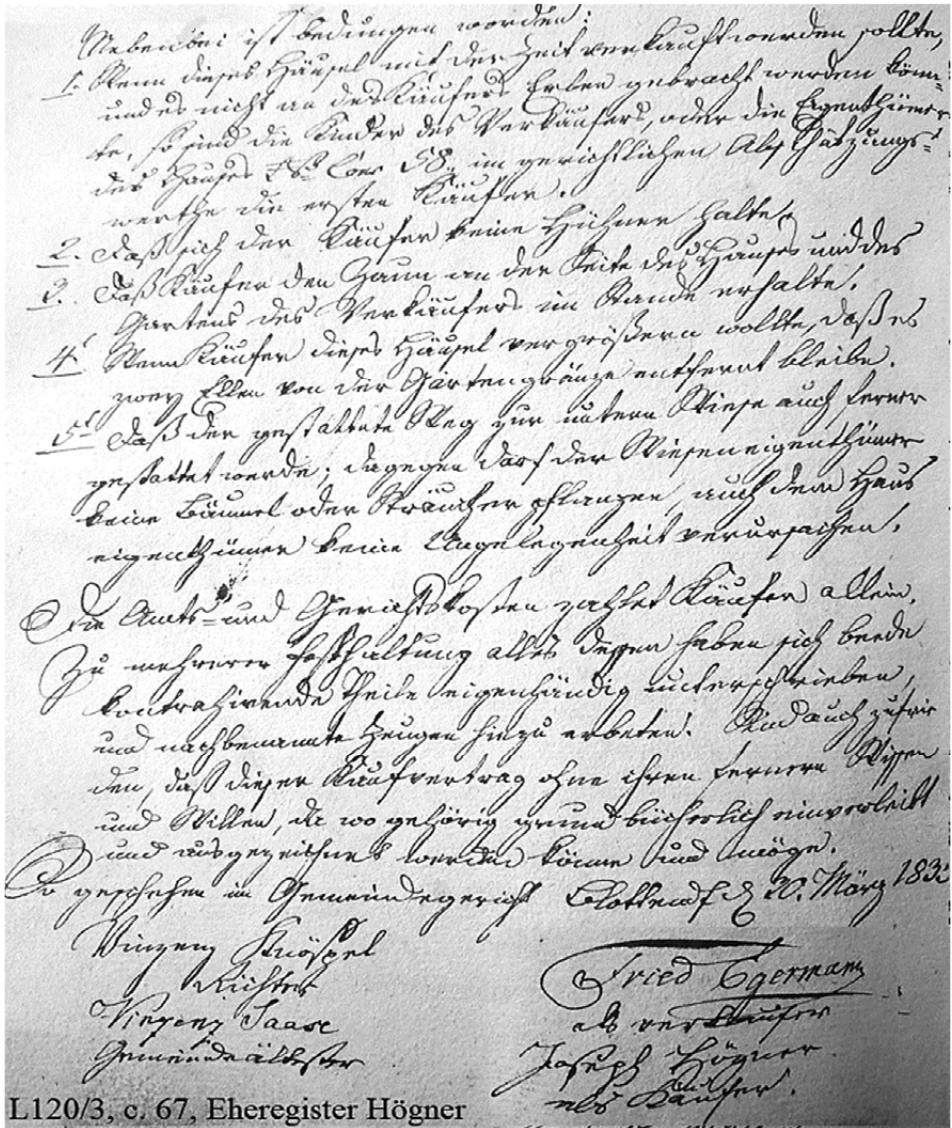 Nebenbei ist bedungen worden:
1. Wenn dieses Häusel mit der Zeit verkauft werden sollte,
und es nicht an des Käufers Erben gebracht werden könn-
te, so sind die Kinder des Verkäufers, oder die Eigenthümer
des Hauses 58 im gerichtlichen Abschätzungs-
werthe die ersten Käufer.
2. Daß sich der Käufer keine Hühner halte.
3. Daß Käufer den Zaun an der Seite des Hauses und des
Gartens des Verkäufers im Stande erhalte.
4 Wenn Käufer dieses Häusel vergrößern wollte, daß es
zwey Ellen von der Gartengränze entfernt bleibe.
5 Daß der gestattete Weg zur untern Wiese auch ferner
gestattet werde; dagegen darf der Wieseneigenthümer
keine Bäumel oder Sträucher pflanzen, auch dem Haus
eigenthümer keine Ungelegenheit verursachen.
Die Amts- und Gerichtskosten zahlet Käufer allein.
Zu mehrerer Festhaltung alles dessen haben sich beede
kontrahirende Theile eigenhändig unterschrieben,
und nachbenannte Zeugen hiezu erbeten. Sind auch zufrie
den, daß dieser Kaufvertrag ohne ihren fernern Wissen
und Willen, da wo gehörig grundbücherlich einverleibt
und ausgezeichnet werden könne und möge.
So geschehen im Gemeindegericht Blottendf d 20. März 183
Vinzenz Knöspel
Richter
Vinzenz Saase
Gemeindeältester
Fried Egermann
als verkäufer
Joseph Högner
als Käufer.
L120/3, c. 67, Eheregister Högner